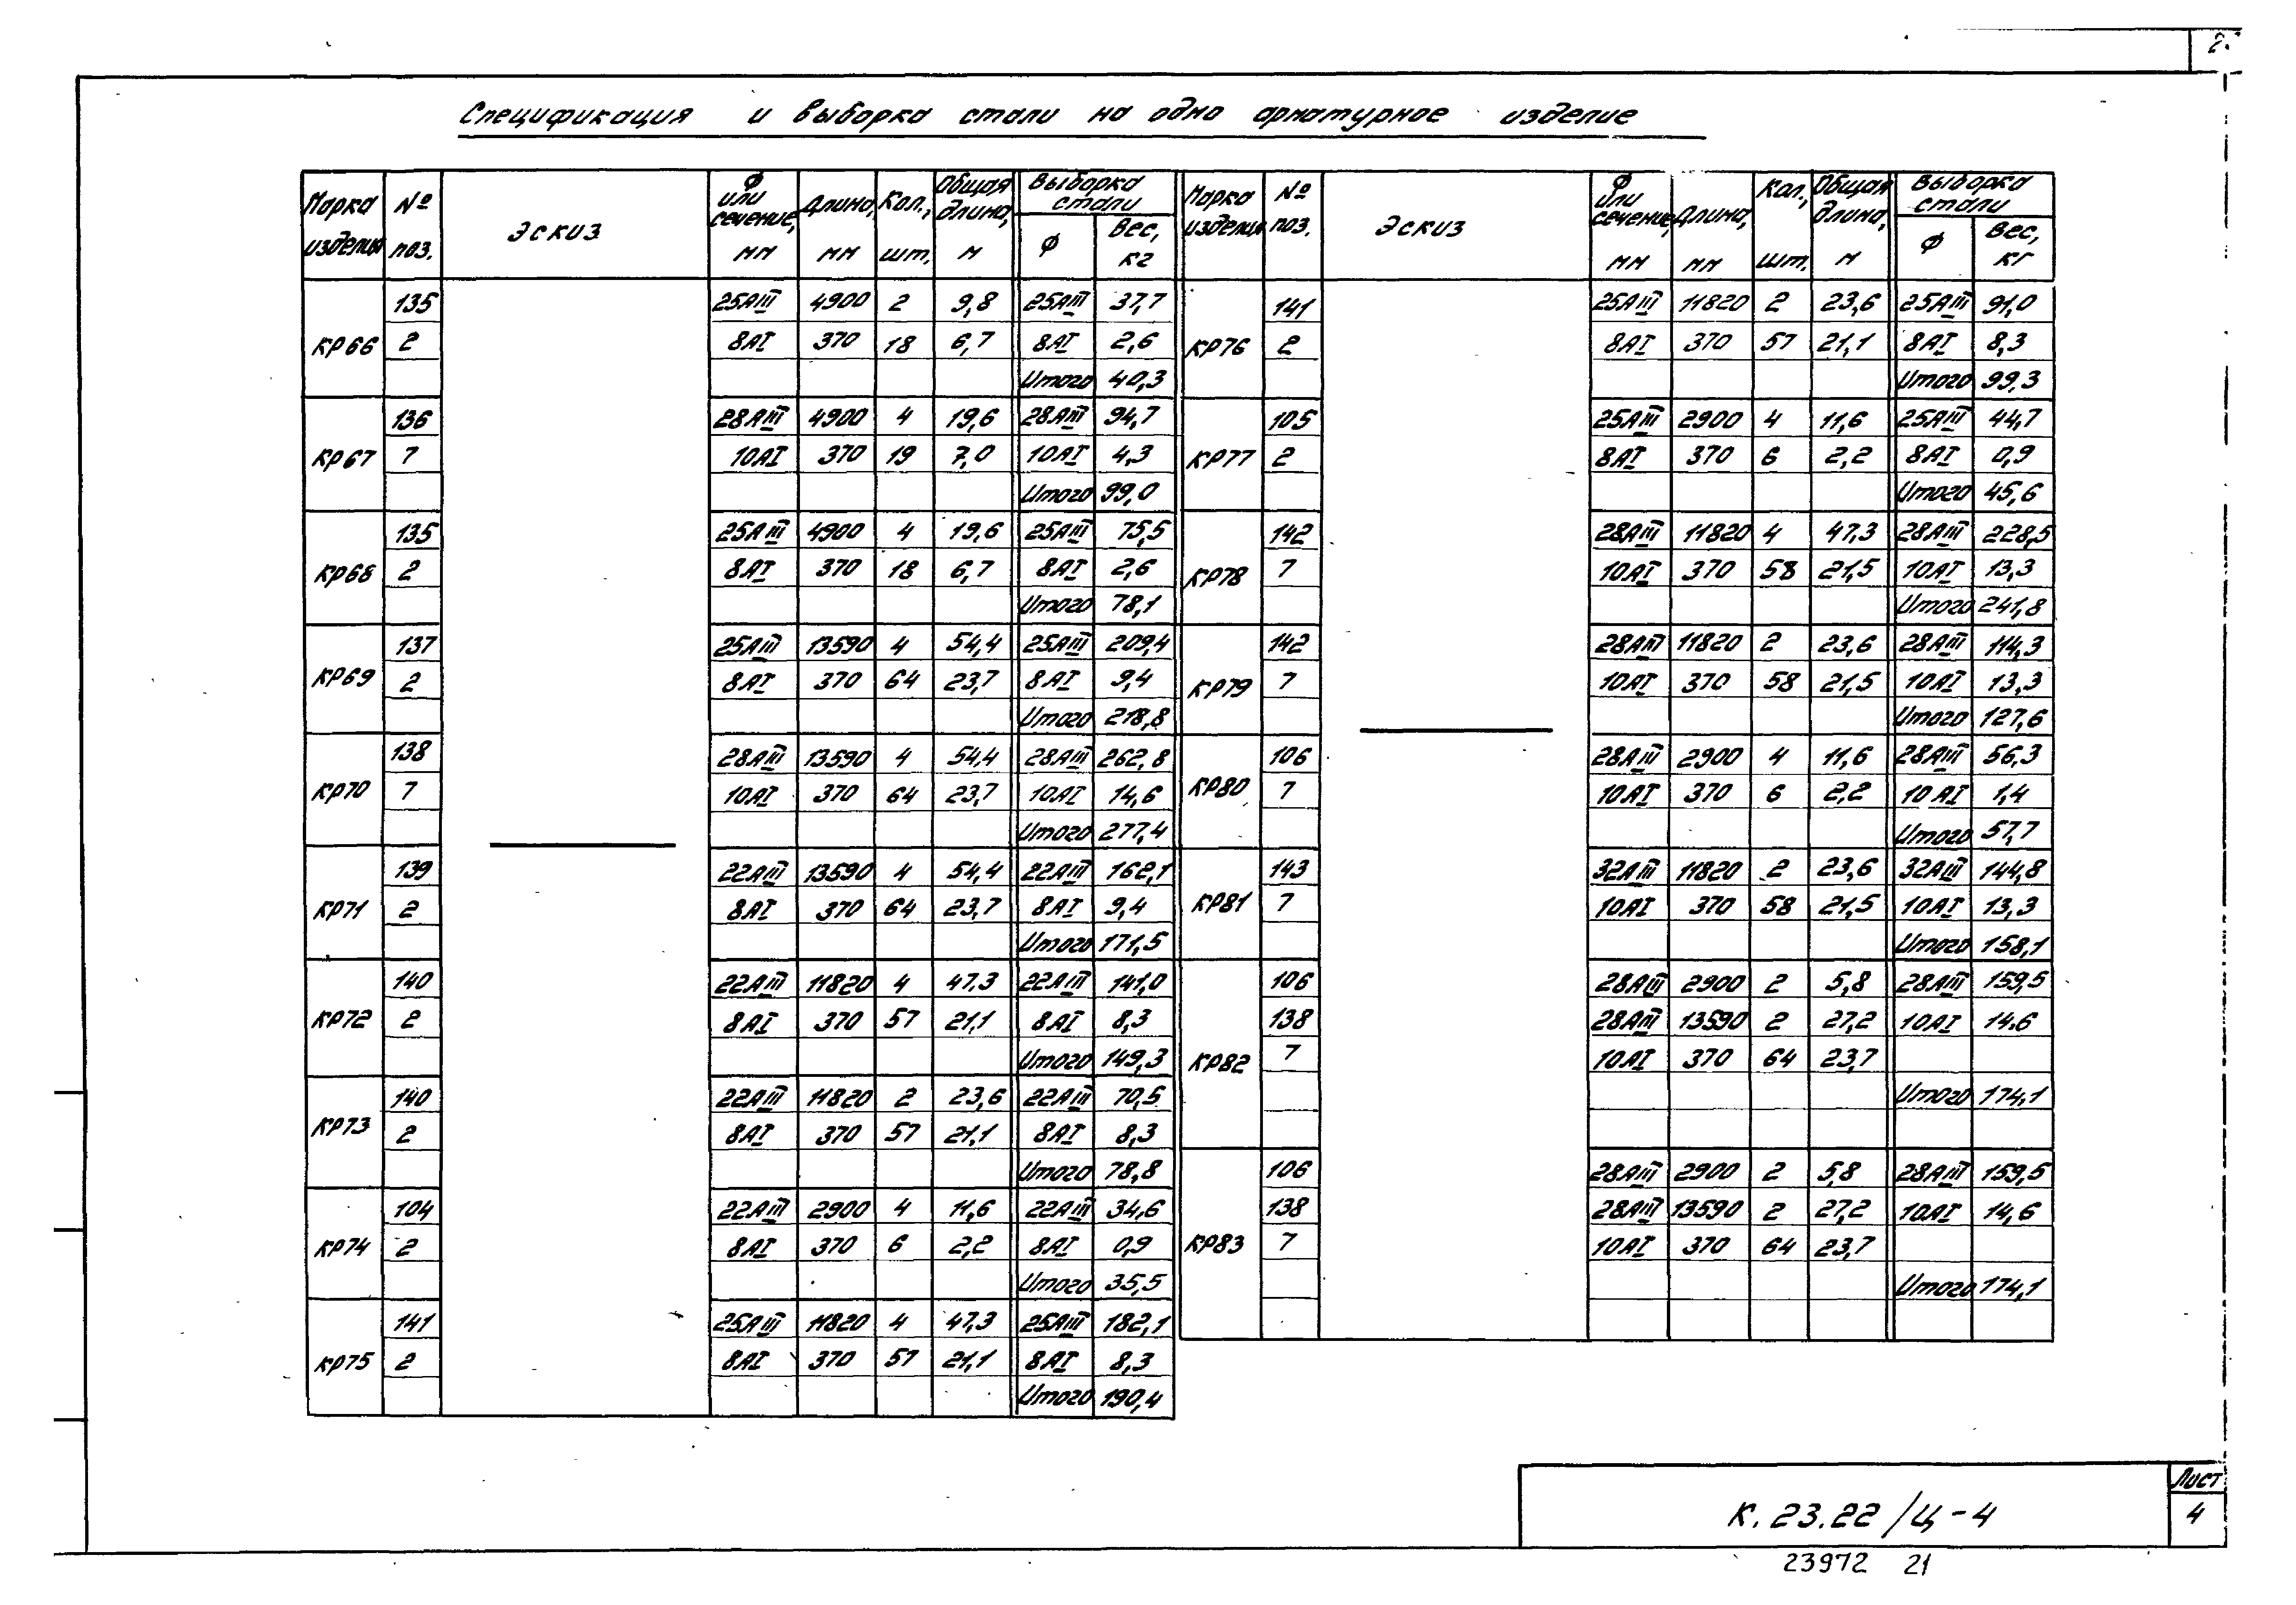 2.
Спецификация и выборка стали на одно арматурное изделие
Марка изделия № поз. Эскиз Ф или сечение, мм Длина, мм Кол., шт. Общая длина, м Выборка стали Ф Вес, кг
Марка изделия № поз. Эскиз Ф или сечение, мм Длина, мм Кол., шт. Общая длина, м Выборка стали Ф Вес, кг
КР66
135 25АIII 4900 2 9,8 25АIII 37,7
2 8АI 370 18 6,7 8АI 2,6
Итого 40,3
КР67
136 28АIII 4900 4 19,6 28АIII 94,7
7 10АI 370 19 7,0 10АI 4,3
Итого 99,0
КР68
135 25АIII 4900 4 19,6 25АIII 75,5
2 8АI 370 18 6,7 8АI 2,6
Итого 78,1
КР69
137 25АIII 13590 4 54,4 25АIII 209,4
2 8АI 370 64 23,7 8АI 9,4
Итого 218,8
КР70
138 28АIII 13590 4 54,4 28АIII 262,8
7 10АI 370 64 23,7 10АI 14,6
Итого 277,4
КР71
139 22АIII 13590 4 54,4 22АIII 162,1
2 8АI 370 64 23,7 8АI 9,4
Итого 171,5
КР72
140 22АIII 11820 4 47,3 22АIII 141,0
2 8АI 370 57 21,1 8АI 8,3
Итого 149,3
КР73
140 22АIII 11820 2 23,6 22АIII 70,5
2 8АI 370 57 21,1 8АI 8,3
Итого 78,8
КР74
104 22АIII 2900 4 11,6 22АIII 34,6
2 8АI 370 6 2,2 8АI 0,9
Итого 35,5
КР75
141 25АIII 11820 4 47,3 25АIII 182,1
2 8АI 370 57 21,1 8АI 8,3
Итого 190,4
КР76
141 25АIII 11820 2 23,6 25АIII 91,0
2 8АI 370 57 21,1 8АI 8,3
Итого 99,3
КР77
105 25АIII 2900 4 11,6 25АIII 44,7
2 8АI 370 6 2,2 8АI 0,9
Итого 45,6
КР78
142 28АIII 11820 4 47,3 28АIII 228,5
7 10АI 370 58 21,5 10АI 13,3
Итого 241,8
КР79
142 28АIII 11820 2 23,6 28АIII 114,3
7 10АI 370 58 21,5 10АI 13,3
Итого 127,6
КР80
106 28АIII 2900 4 11,6 28АIII 56,3
7 10АI 370 6 2,2 10АI 1,4
Итого 57,7
КР81
143 32АIII 11820 2 23,6 32АIII 144,8
7 10АI 370 58 21,5 10АI 13,3
Итого 158,1
КР82
106 28АIII 2900 2 5,8 28АIII 159,5
138 28АIII 13590 2 27,2 10АI 14,6
7 10АI 370 64 23,7
Итого 174,1
КР83
106 28АIII 2900 2 5,8 28АIII 159,5
138 28АIII 13590 2 27,2 10АI 14,6
7 10АI 370 64 23,7
Итого 174,1
К.23.22/Ц-4
Лист
4
23972 21